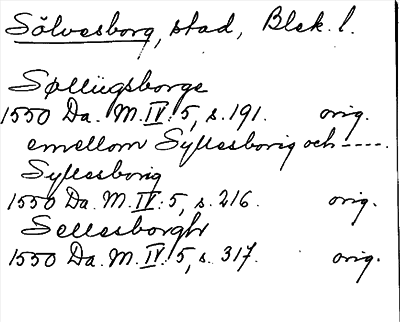 Sölvesborg, stad, Blek. l.
Søllügsborge
1550 Da. M. IV: 5, s. 191. orig.
emellom Syllesborig och ----.
Syllesborig
1550 Da. M. IV: 5, s. 216. orig.
Sellesborghr
1550 Da. M. IV: 5, s. 317. orig.